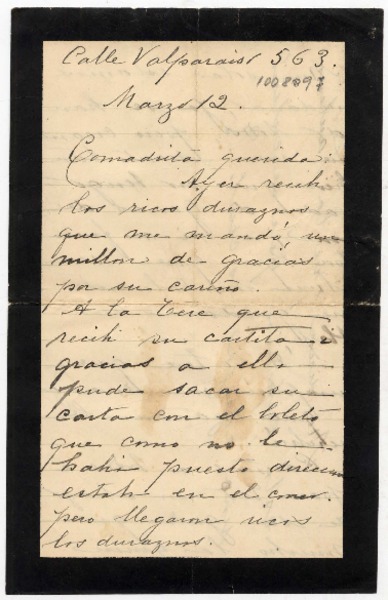 Calle Valparaiso 563.
1008097
Marzo 12.
Comadrita querida:
Ayer recibí
los ricos duraznos
que me mandó, un
millon de gracias
por su cariño.
A la Tere que
recibí su cartita i
gracias a ella
pude sacar su
carta con el boleto
que como no le
había puesto direccion
estaba en el correo.
pero llegaron ricos
los duraznos.